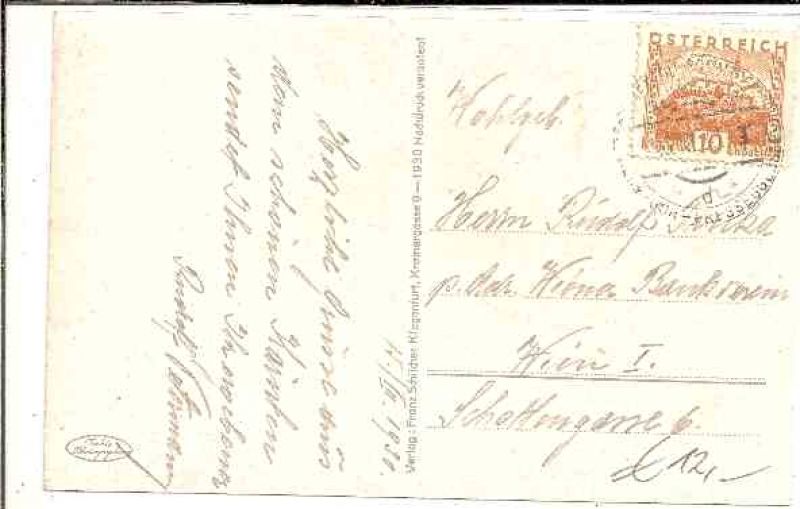 Herzliche Grüsse aus
dem schönen Kärnten
sendet Ihnen
Rudolf
1930.
Verlag: Franz Schilcher Klagenfurt, Kramergasse 9 — 1930 Nachdruck verboten!
ÖSTERREICH
10
Wohlgeb.
Herrn Rudolf
p. Adr. Wiener Bankverein
Wien I.
Schottengasse 6.
12,-
Echte